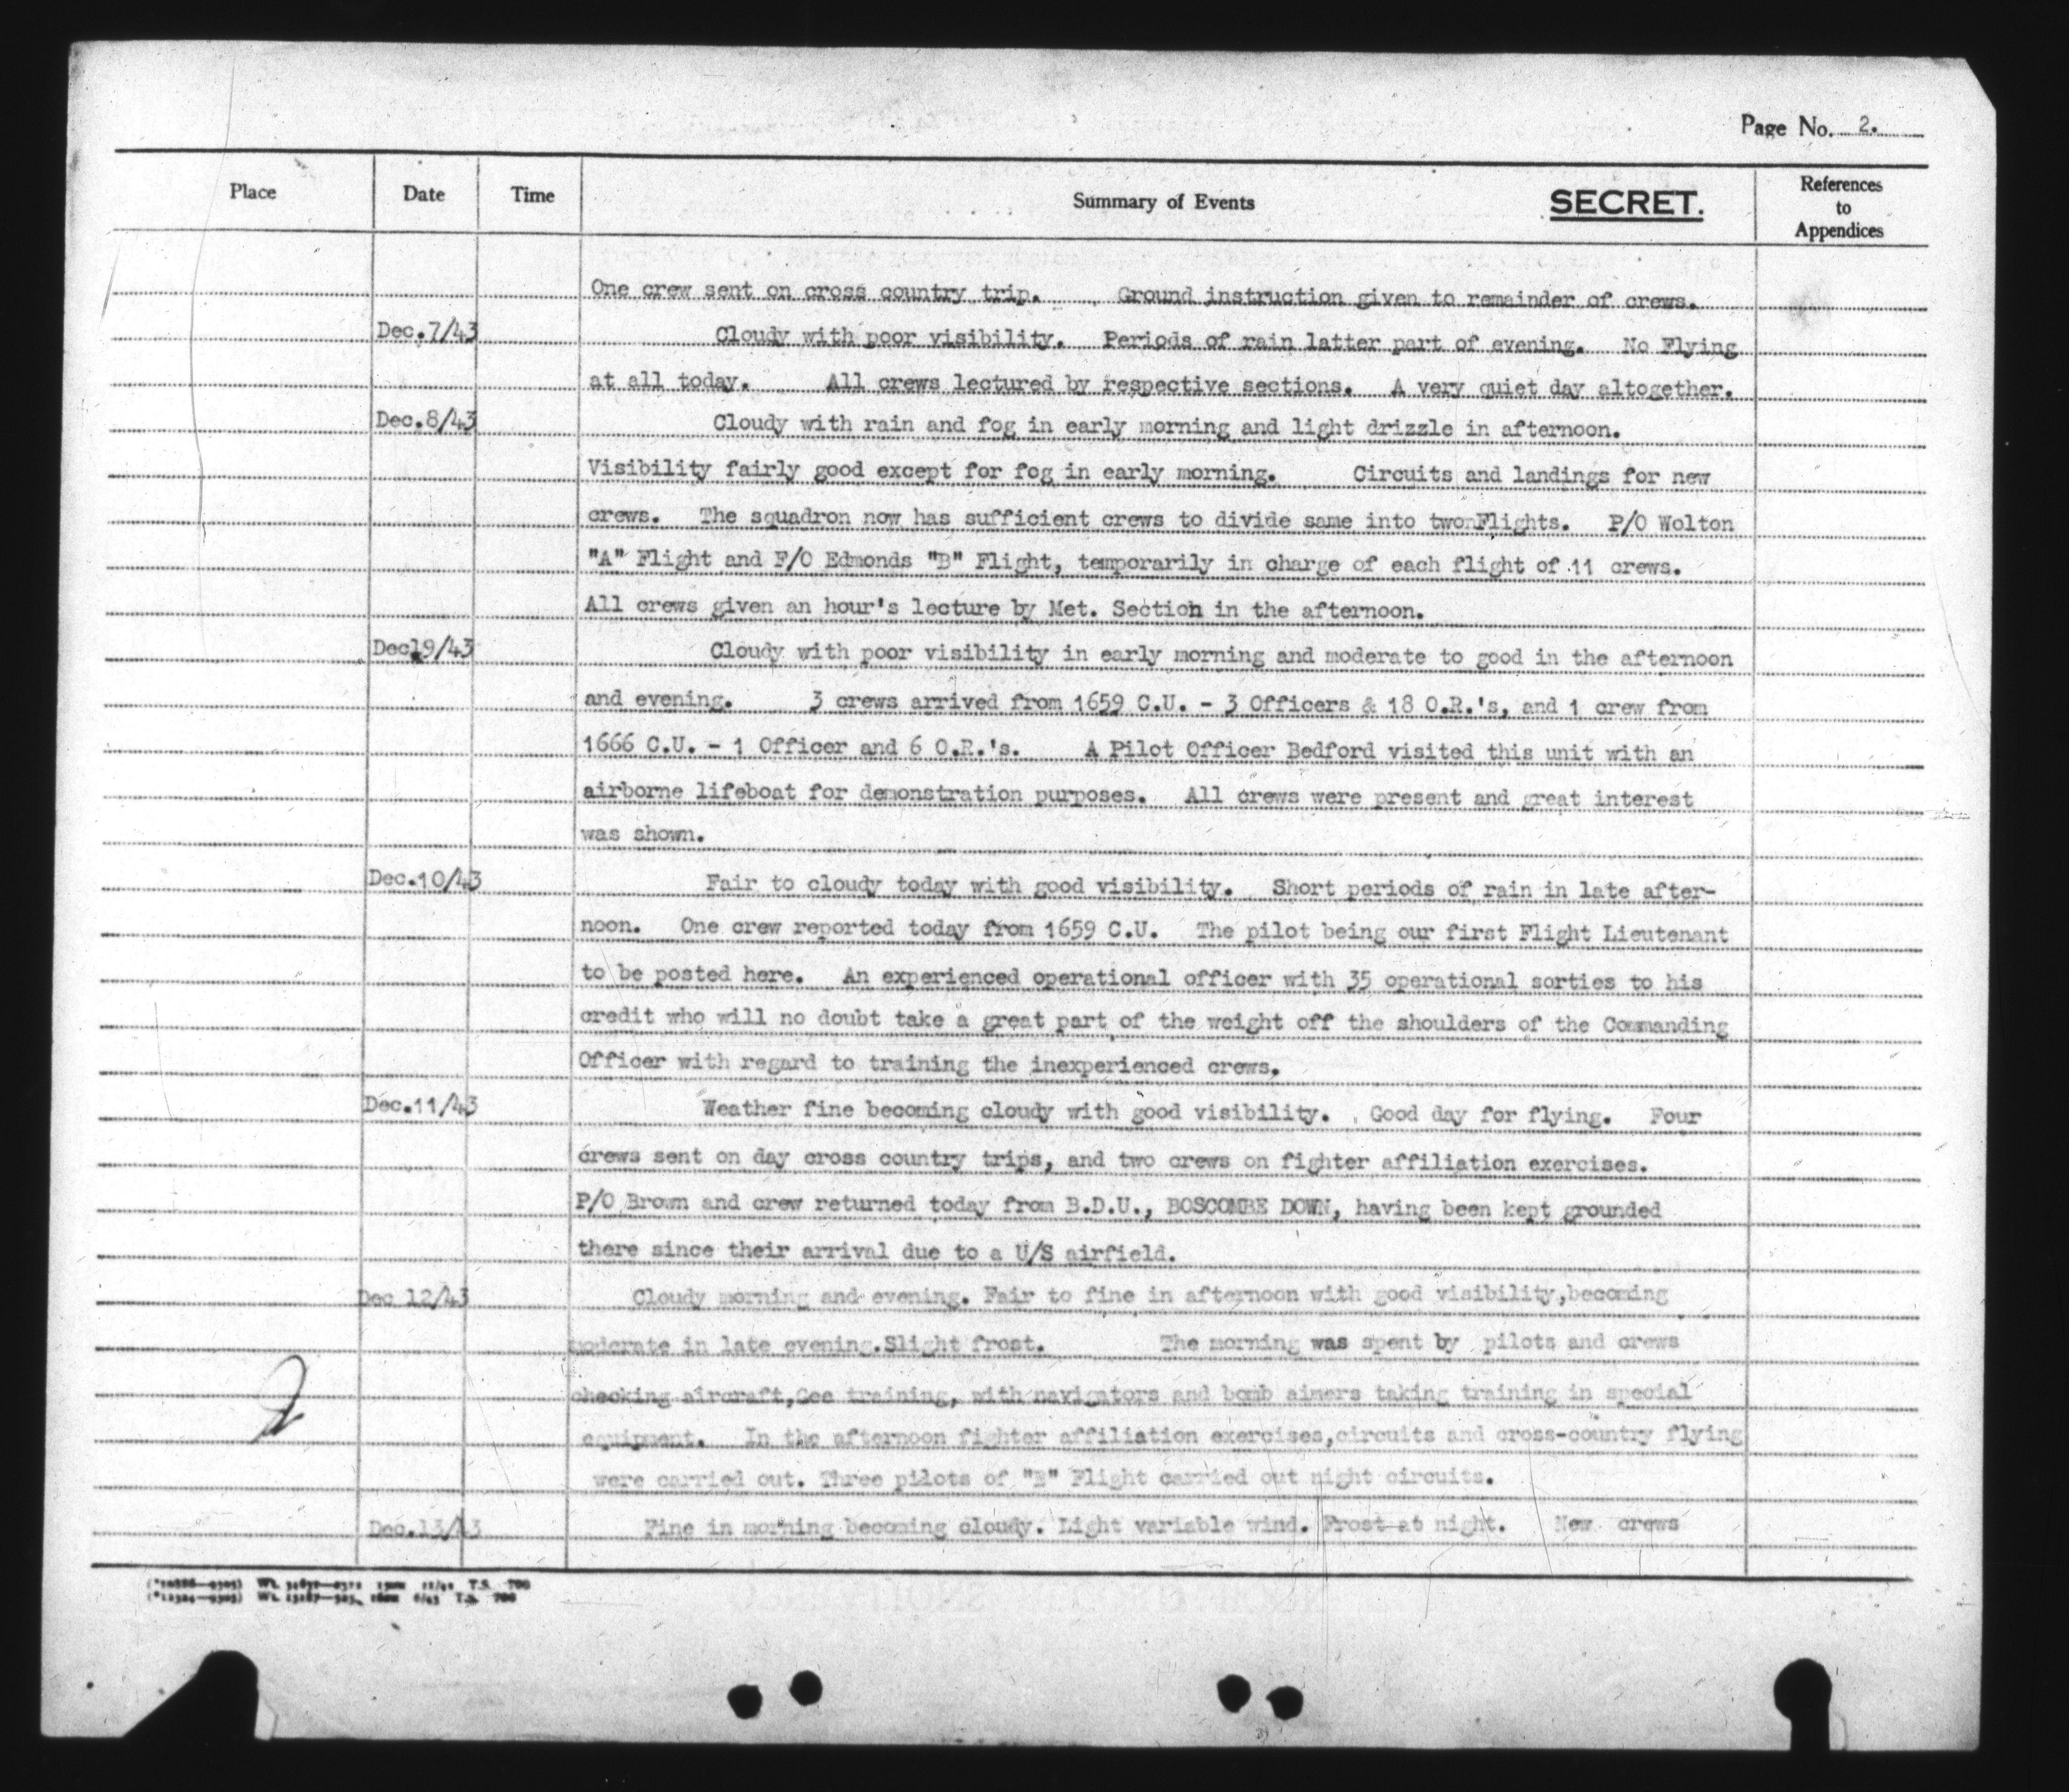 Page No. 2.
Place Date Time Summary of Events SECRET. References to Appendices
One crew sent on cross country trip. Ground instruction given to remainder of crews.
Dec.7/43 Cloudy with poor visibility. Periods of rain latter part of evening. No Flying
at all today. All crews lectured by respective sections. A very quiet day altogether.
Dec.8/43 Cloudy with rain and fog in early morning and light drizzle in afternoon.
Visibility fairly good except for fog in early morning. Circuits and landings for new
crews. The squadron now has sufficient crews to divide same into twonFlights. P/O Wolton
"A" Flight and F/O Edmonds "B" Flight, temporarily in charge of each flight of 11 crews.
All crews given an hour's lecture by Met. Section in the afternoon.
Dec.9/43 Cloudy with poor visibility in early morning and moderate to good in the afternoon
and evening. 3 crews arrived from 1659 C.U. - 3 Officers & 18 O.R.'s, and 1 crew from
1666 C.U. - 1 Officer and 6 O.R.'s. A Pilot Officer Bedford visited this unit with an
airborne lifeboat for demonstration purposes. All crews were present and great interest
was shown.
Dec.10/43 Fair to cloudy today with good visibility. Short periods of rain in late after-
noon. One crew reported today from 1659 C.U. The pilot being our first Flight Lieutenant
to be posted here. An experienced operational officer with 35 operational sorties to his
credit who will no doubt take a great part of the weight off the shoulders of the Commanding
Officer with regard to training the inexperienced crews.
Dec.11/43 Weather fine becoming cloudy with good visibility. Good day for flying. Four
crews sent on day cross country trips, and two crews on fighter affiliation exercises.
P/O Brown and crew returned today from B.D.U., BOSCOMBE DOWN, having been kept grounded
there since their arrival due to a U/S airfield.
Dec 12/43 Cloudy morning and evening. Fair to fine in afternoon with good visibility,becoming
moderate in late evening.Slight frost. The morning was spent by pilots and crews
checking aircraft,Gee training, with navigators and bomb aimers taking training in special
equipment. In the afternoon fighter affiliation exercises,circuits and cross-country flying
were carried out. Three pilots of "B" Flight carried out night circuits.
Dec.13/43 Fine in morning becoming cloudy. Light variable wind. Frost at night. New crews